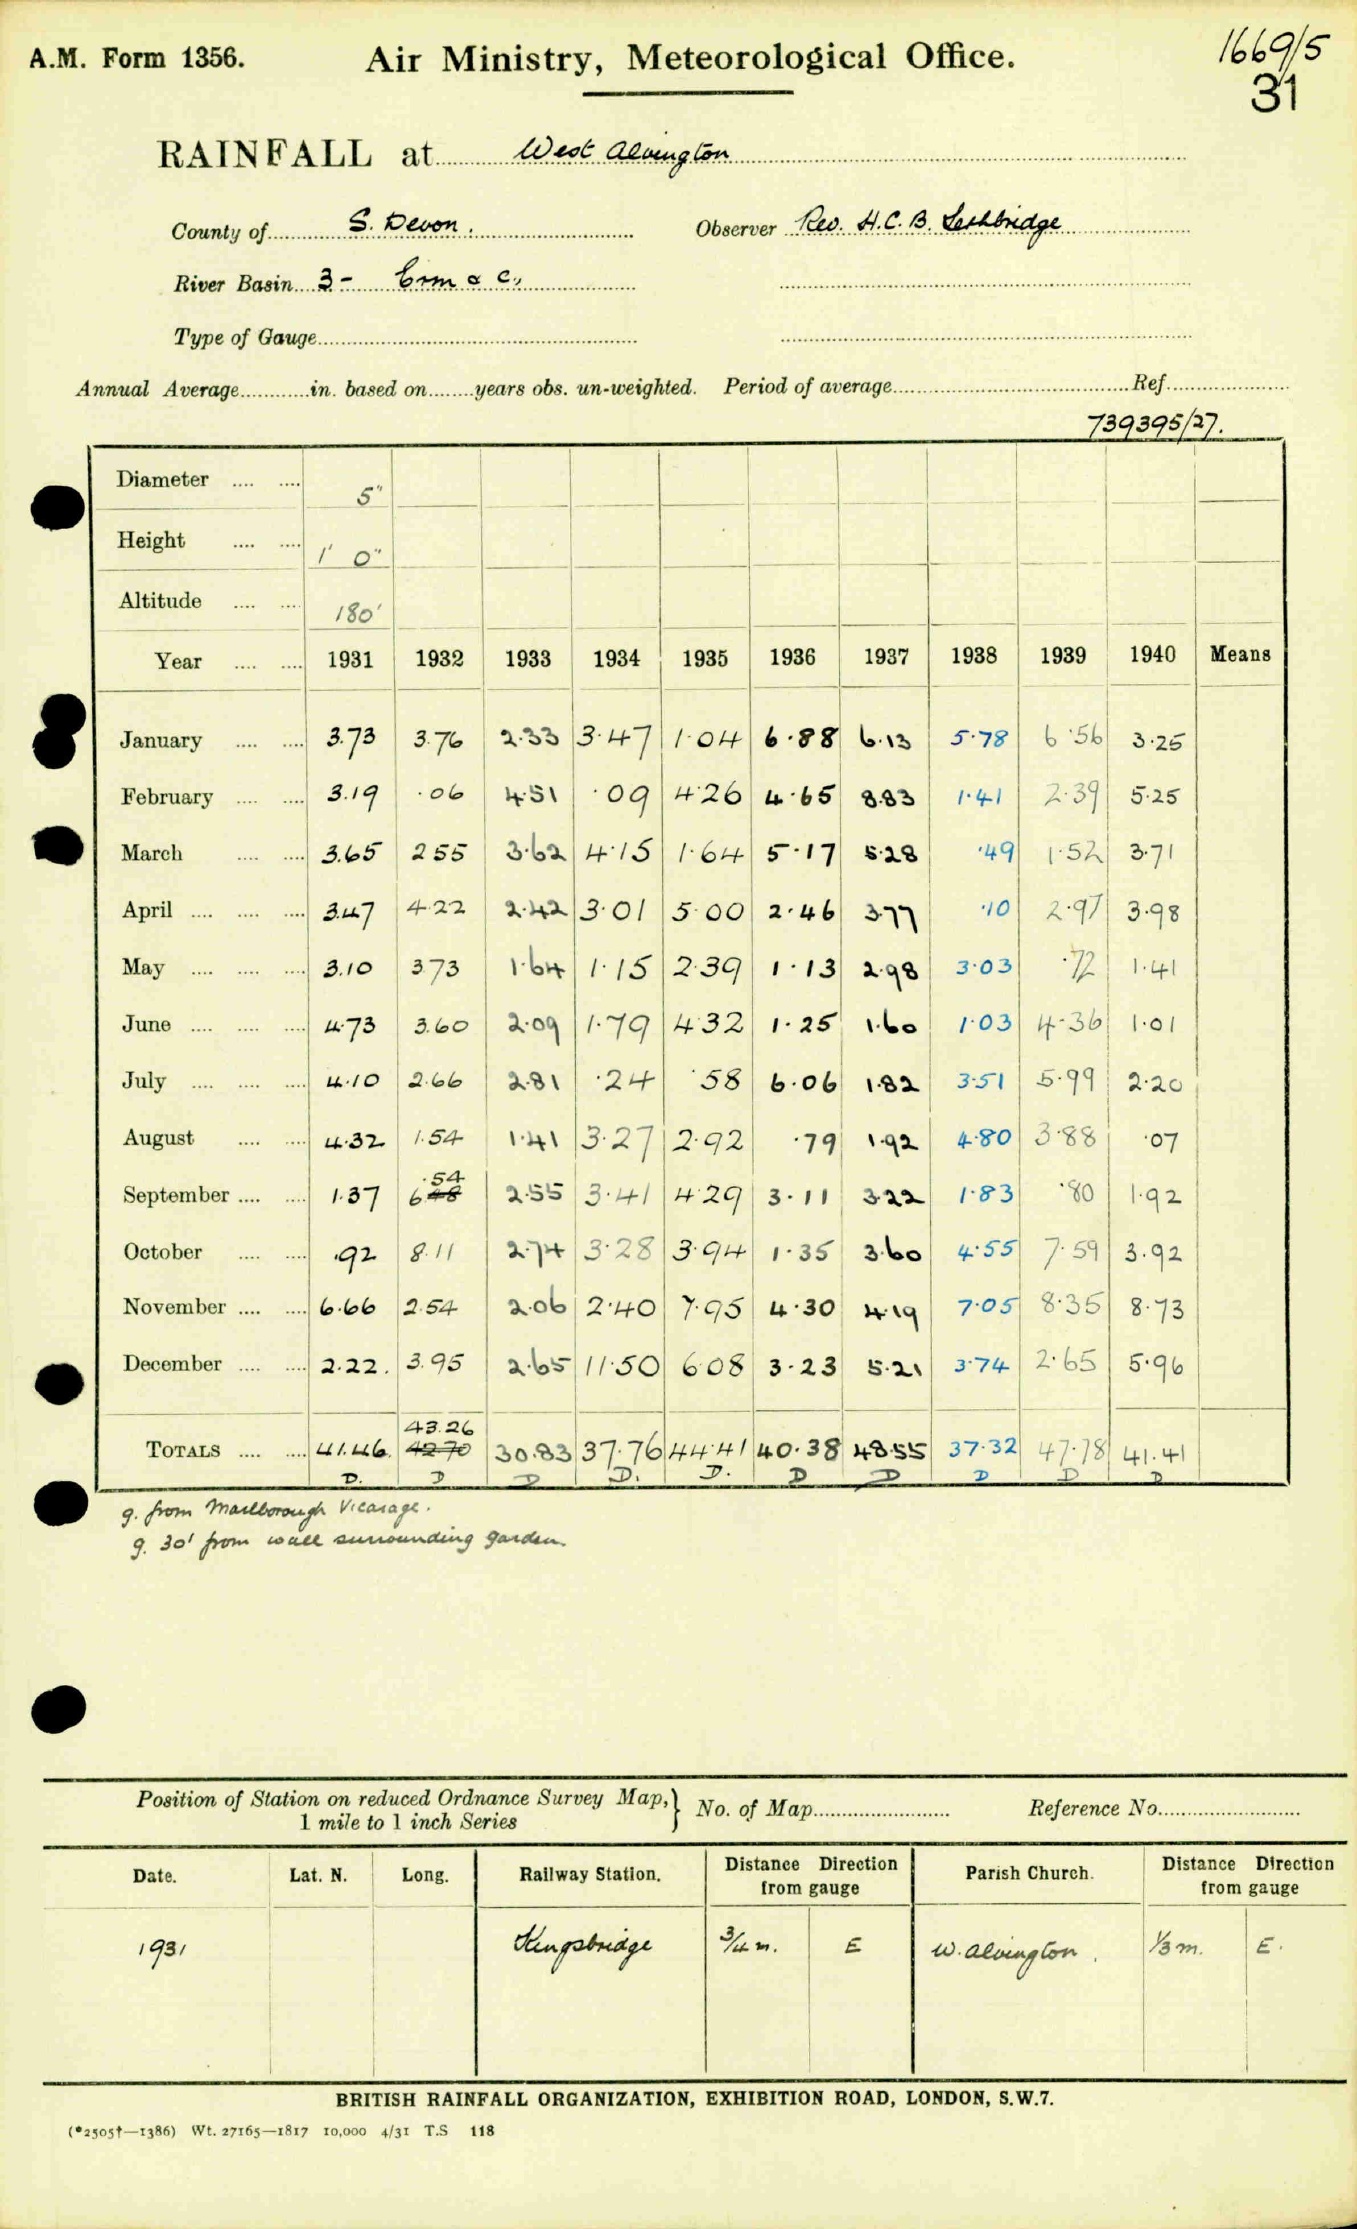 A.M. Form 1356. Air Ministry, Meteorological Office. 1669/5
31
RAINFALL at West Alvington
County of S. Devon. Observer Rev. H.C.B. Lethbridge
River Basin 3- Erm & c.,
Type of Gauge
Annual Average in. based on years obs. un-weighted. Period of average Ref.
739395/27.
Diameter 5"
Height 1' 0"
Altitude 180'
Year 1931 1932 1933 1934 1935 1936 1937 1938 1939 1940 Means
January 3.73 3.76 2.33 3.47 1.04 6.88 6.13 5.78 6.56 3.25
February 3.19 .06 4.51 .09 4.26 4.65 8.83 1.41 2.39 5.25
March 3.65 2 55 3.62 4.15 1.64 5.17 5.28 .49 1.52 3.71
April 3.47 4.22 2.42 3.01 5.00 2.46 3.77 .10 2.97 3.98
May 3.10 3.73 1.64 1.15 2.39 1.13 2.98 3.03 .72 1.41
June 4.73 3.60 2.09 1.79 4.32 1.25 1.60 1.03 4.36 1.01
July 4.10 2.66 2.81 .24 .58 6.06 1.82 3.51 5.99 2.20
August 4.32 1.54 1.41 3.27 2.92 .79 1.92 4.80 3.88 .07
.54
September 1.37 6 48 2.55 3.41 4.29 3.11 3.22 1.83 .80 1.92
October .92 8.11 2.74 3.28 3.94 1.35 3.60 4.55 7.59 3.92
November 6.66 2.54 2.06 2.40 7.95 4.30 4.19 7.05 8.35 8.73
December 2.22. 3.95 2.65 11.50 6.08 3.23 5.21 3.74 2.65 5.96
43.26
TOTALS 41.46 42.70 30.83 37.76 44.41 40.38 48.55 37.32 47.78 41.41
D. D D D. D. D D D D D
g. from Marlborough Vicarage.
g. 30' from wall surrounding garden.
Position of Station on reduced Ordnance Survey Map, } No. of Map Reference No.
1 mile to 1 inch Series
Date. Lat. N. Long. Railway Station. Distance Direction Parish Church. Distance Direction
from gauge from gauge
1931 Kingsbridge 3/4 m. E W. Alvington. 1/3 m. E.
BRITISH RAINFALL ORGANIZATION, EXHIBITION ROAD, LONDON, S.W.7.
(*2505†—1386) Wt. 27165—1817 10,000 4/31 T.S 118